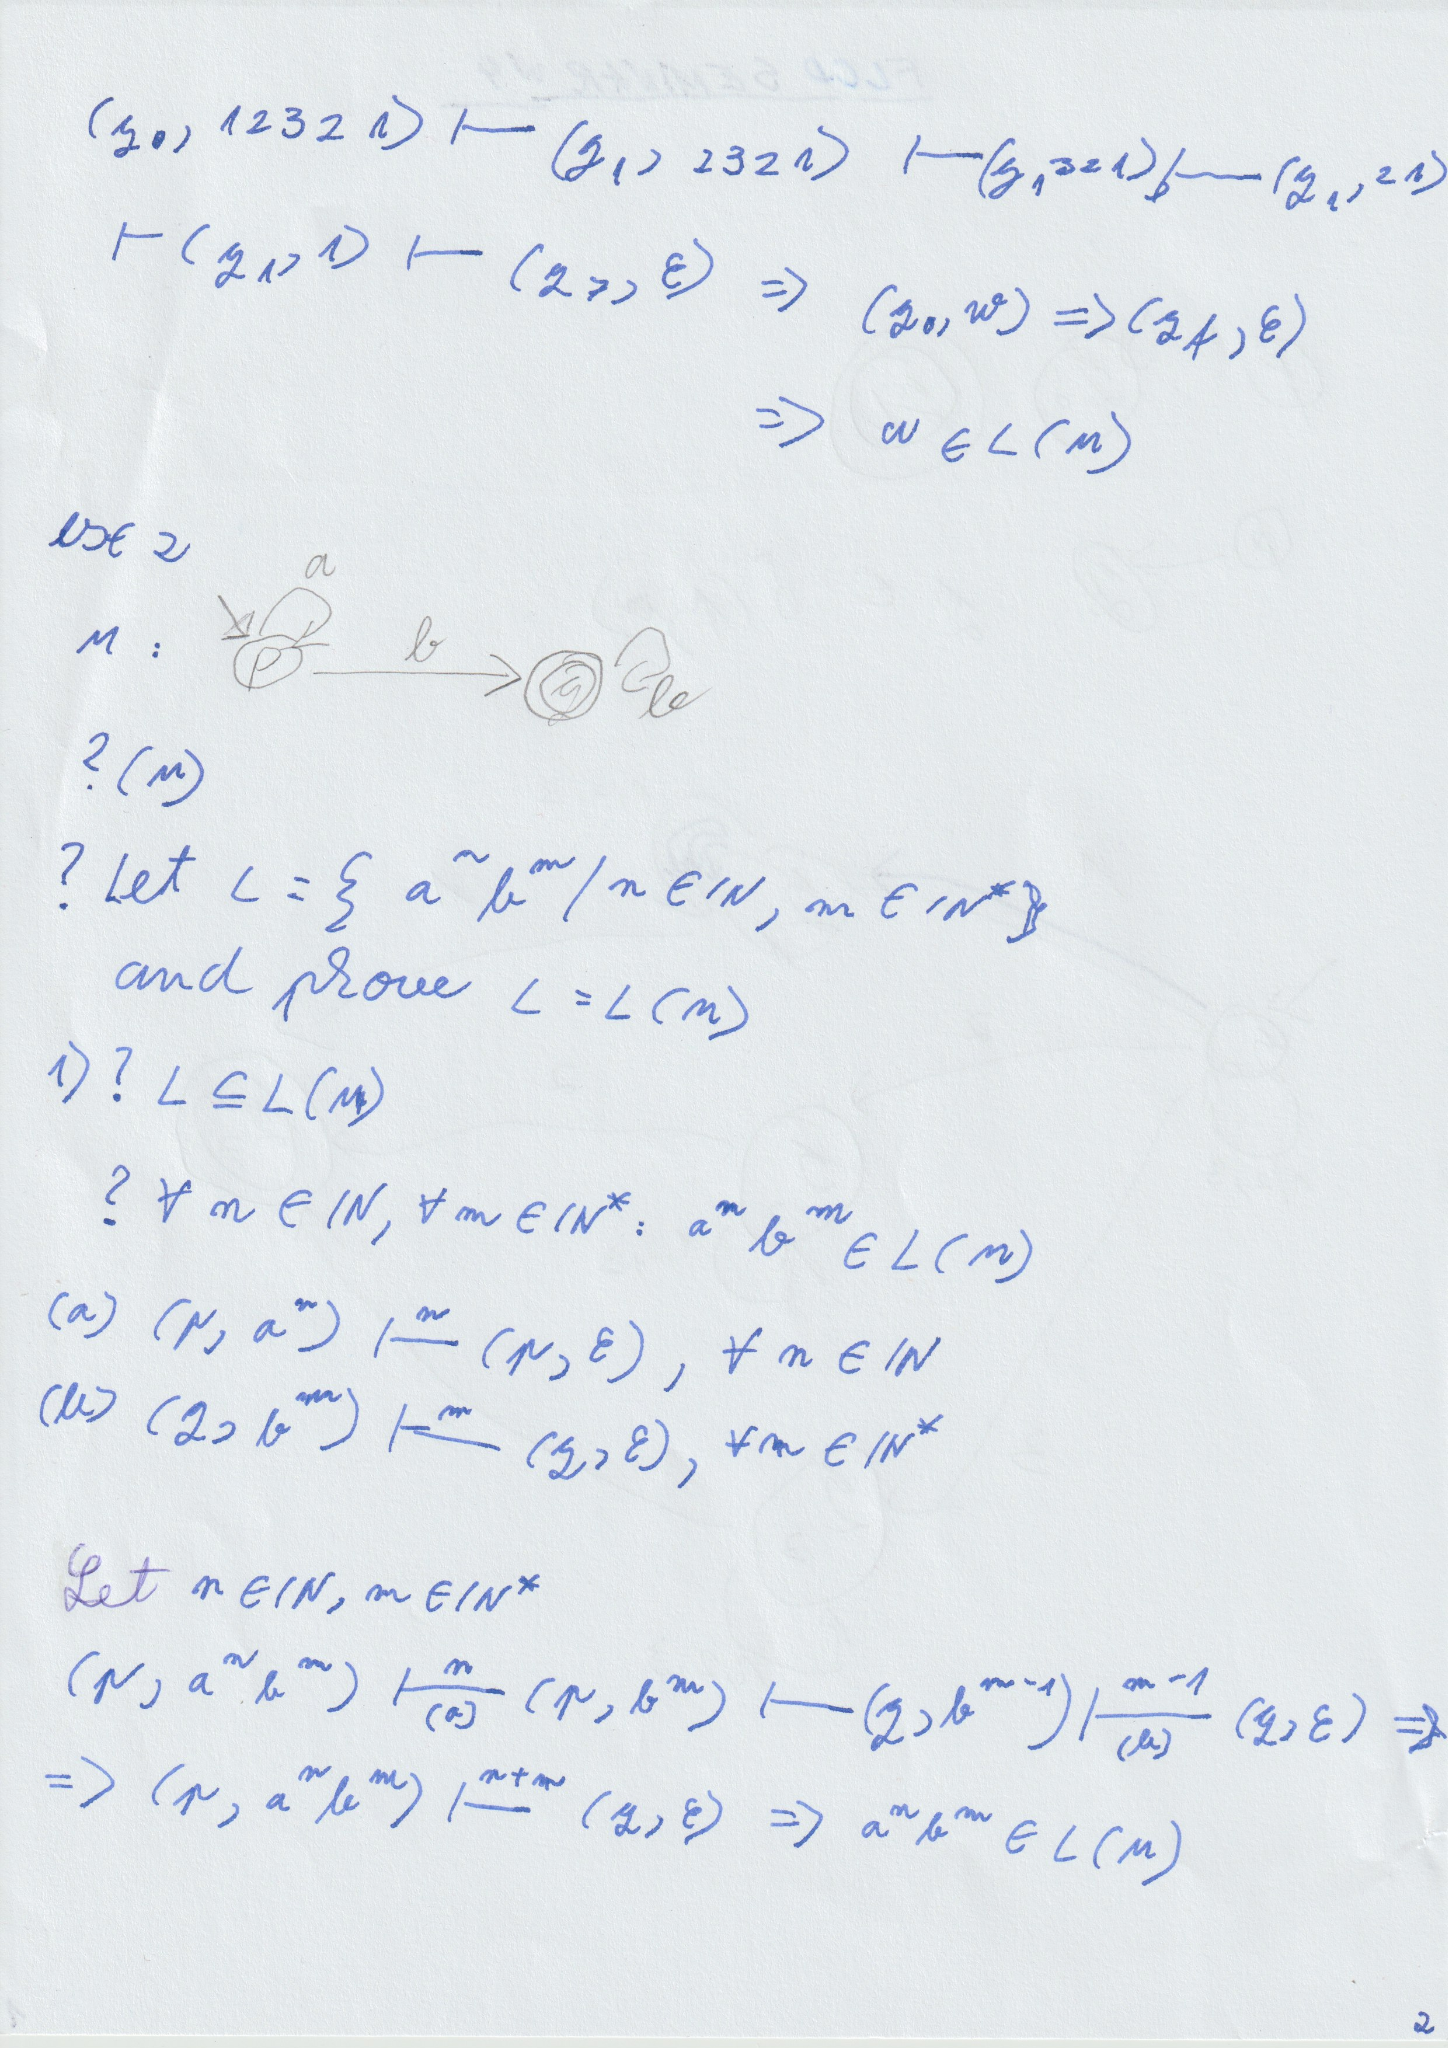 (q₀, 12321) ⊢ (q₁, 2321) ⊢ (q₁, 321) ⊢ (q₁, 21)
⊢ (q₁, 1) ⊢ (q₇, ε) ⇒ (q₀, w) ⇒ (q_f, ε)
⇒ w ∈ L(M)
EX 2
a
M: p b q b
? (M)
? Let L = { aⁿ bᵐ / n ∈ ℕ, m ∈ ℕ* }
and prove L = L(M)
1) ? L ⊆ L(M)
? ∀ n ∈ ℕ, ∀ m ∈ ℕ*: aⁿ bᵐ ∈ L(M)
(a) (p, aⁿ) ⊢ⁿ (p, ε), ∀ n ∈ ℕ
(b) (q, bᵐ) ⊢ᵐ (q, ε), ∀ m ∈ ℕ*
Let n ∈ ℕ, m ∈ ℕ*
(p, aⁿ bᵐ) ⊢ⁿ (a) (p, bᵐ) ⊢ (q, bᵐ⁻¹) ⊢ᵐ⁻¹ (b) (q, ε) ⇒
⇒ (p, aⁿ bᵐ) ⊢ⁿ⁺ᵐ (q, ε) ⇒ aⁿ bᵐ ∈ L(M)
2